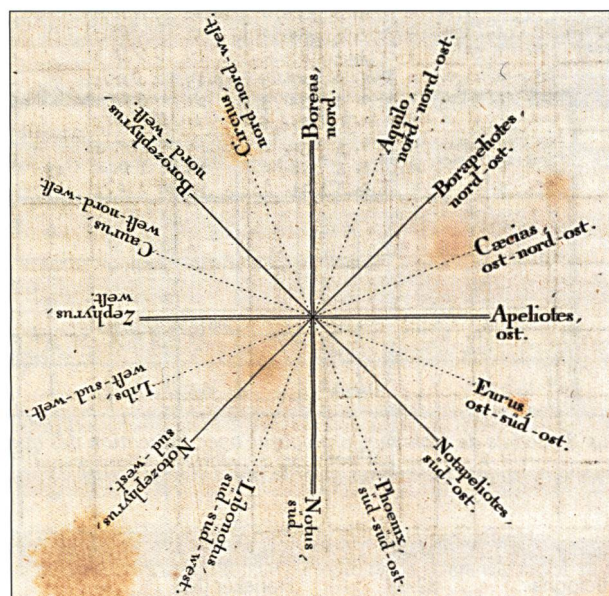 Boreas,
nord.
Aquilo,
nord-nord-ost.
Borapeliotes,
nord-ost.
Cæcias,
ost-nord-ost.
Apeliotes,
ost.
Eurus,
ost-süd-ost.
Notapeliotes,
süd-ost.
Phoenix,
süd-süd-ost.
Notus,
süd.
Libonotus,
süd-süd-west.
Notozephyrus,
süd-west.
Libs,
weſt-süd-weſt.
Zephyrus,
weſt.
Caurus,
weſt-nord-weſt.
Borozephyrus,
nord-weſt.
Circius,
nord-nord-weſt.